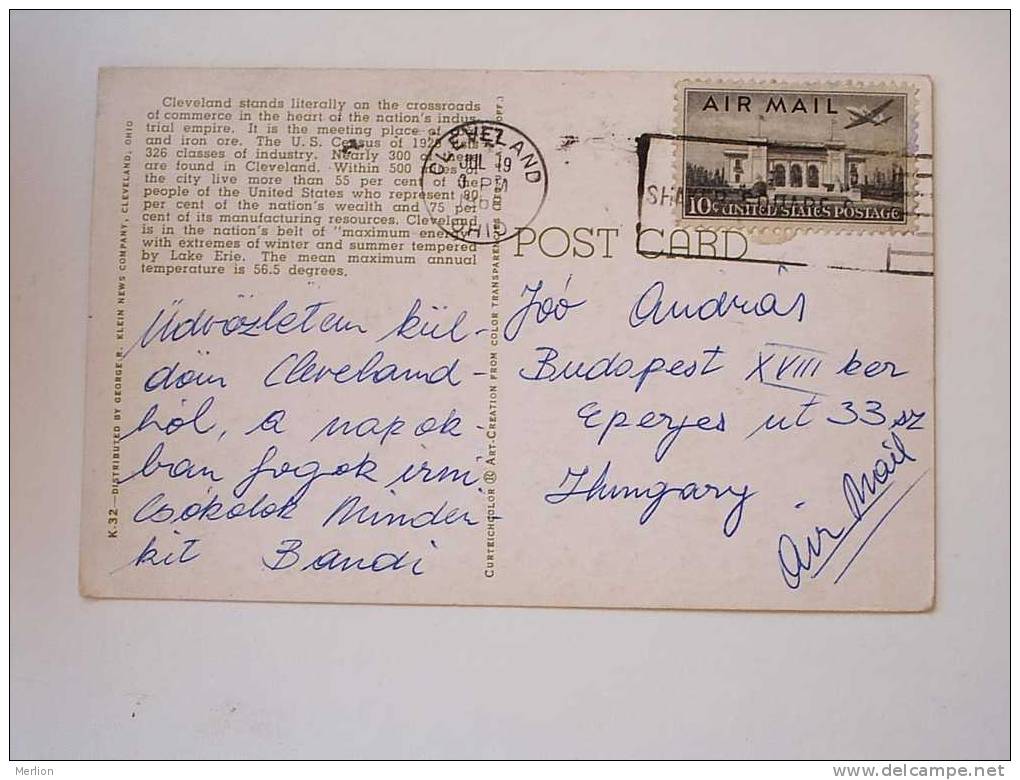 Cleveland stands literally on the crossroads
of commerce in the heart of the nation's indus-
trial empire. It is the meeting place of
and iron ore. The U.S. Census of
326 classes of industry. Nearly 300 of
are found in Cleveland. Within 500
the city live more than 55 per cent of the
people of the United States who represent 80
per cent of the nation's wealth and 75 per
cent of its manufacturing resources. Cleveland
is in the nation's belt of "maximum energy"
with extremes of winter and summer tempered
by Lake Erie. The mean maximum annual
temperature is 56.5 degrees.
Üdvözletem kül-
döm Cleveland-
ból, a napok-
ban fogok irni
Csókolok Minden-
kit Bandi
K-32—DISTRIBUTED BY GEORGE R. KLEIN NEWS COMPANY, CLEVELAND, OHIO
CURTEICHCOLOR ® ART-CREATION FROM COLOR TRANSPARENCIES
CLEVELAND
JUL 19
PM
OHIO
AIR MAIL
10¢ UNITED STATES POSTAGE
POST CARD
Joó András
Budapest XVIII ker
Eperjes ut 33 sz
Hungary
Air Mail
Merlion
http://www.delcampe.net